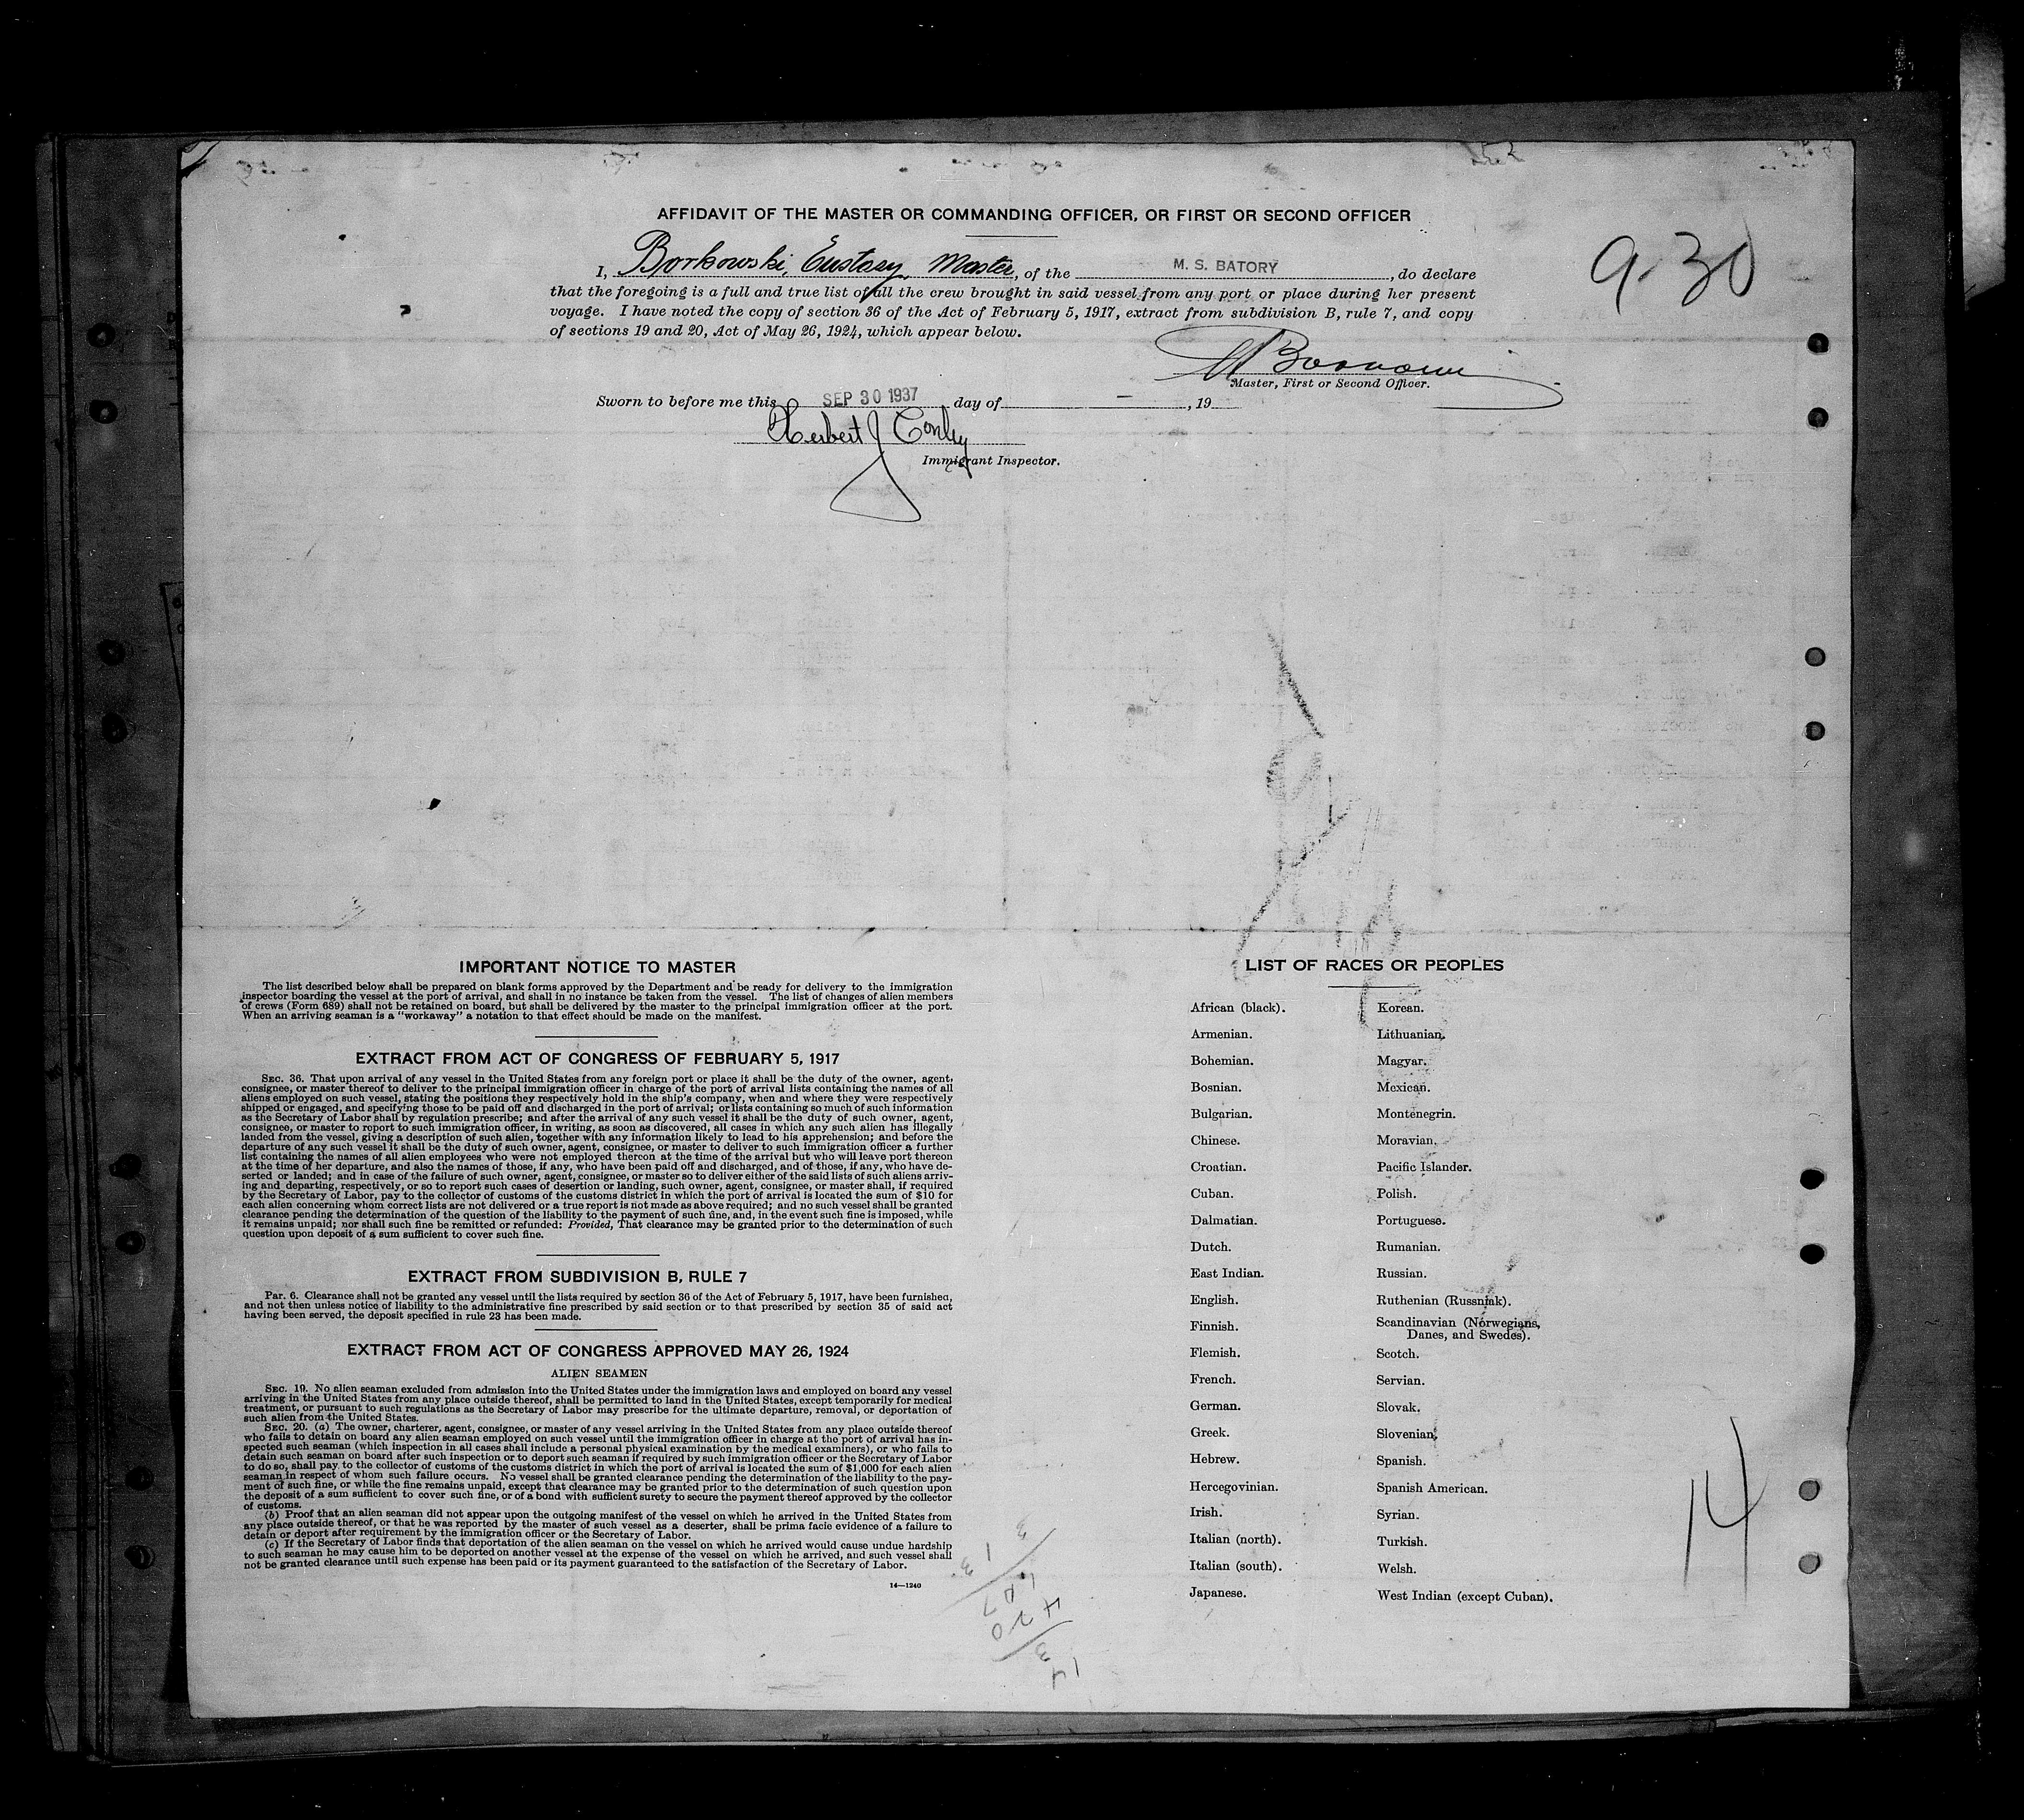 AFFIDAVIT OF THE MASTER OR COMMANDING OFFICER, OR FIRST OR SECOND OFFICER
9-30
I, Borkowski, Eustazy, Master, of the M. S. BATORY, do declare
that the foregoing is a full and true list of all the crew brought in said vessel from any port or place during her present
voyage. I have noted the copy of section 36 of the Act of February 5, 1917, extract from subdivision B, rule 7, and copy
of sections 19 and 20, Act of May 26, 1924, which appear below.
Master, First or Second Officer.
Sworn to before me this SEP 30 1937 day of — , 19
Herbert J Conley
Immigrant Inspector.
IMPORTANT NOTICE TO MASTER
The list described below shall be prepared on blank forms approved by the Department and be ready for delivery to the immigration
inspector boarding the vessel at the port of arrival, and shall in no instance be taken from the vessel. The list of changes of alien members
of crews (Form 689) shall not be retained on board, but shall be delivered by the master to the principal immigration officer at the port.
When an arriving seaman is a "workaway" a notation to that effect should be made on the manifest.
EXTRACT FROM ACT OF CONGRESS OF FEBRUARY 5, 1917
SEC. 36. That upon arrival of any vessel in the United States from any foreign port or place it shall be the duty of the owner, agent,
consignee, or master thereof to deliver to the principal immigration officer in charge of the port of arrival lists containing the names of all
aliens employed on such vessel, stating the positions they respectively hold in the ship's company, when and where they were respectively
shipped or engaged, and specifying those to be paid off and discharged in the port of arrival; or lists containing so much of such information
as the Secretary of Labor shall by regulation prescribe; and after the arrival of any such vessel it shall be the duty of such owner, agent,
consignee, or master to report to such immigration officer, in writing, as soon as discovered, all cases in which any such alien has illegally
landed from the vessel, giving a description of such alien, together with any information likely to lead to his apprehension; and before the
departure of any such vessel it shall be the duty of such owner, agent, consignee, or master to deliver to such immigration officer a further
list containing the names of all alien employees who were not employed thereon at the time of the arrival but who will leave port thereon
at the time of her departure, and also the names of those, if any, who have been paid off and discharged, and of those, if any, who have de-
serted or landed; and in case of the failure of such owner, agent, consignee, or master so to deliver either of the said lists of such aliens arriv-
ing and departing, respectively, or so to report such cases of desertion or landing, such owner, agent, consignee, or master shall, if required
by the Secretary of Labor, pay to the collector of customs of the customs district in which the port of arrival is located the sum of $10 for
each alien concerning whom correct lists are not delivered or a true report is not made as above required; and no such vessel shall be granted
clearance pending the determination of the question of the liability to the payment of such fine, and, in the event such fine is imposed, while
it remains unpaid; nor shall such fine be remitted or refunded: Provided, That clearance may be granted prior to the determination of such
question upon deposit of a sum sufficient to cover such fine.
EXTRACT FROM SUBDIVISION B, RULE 7
Par. 6. Clearance shall not be granted any vessel until the lists required by section 36 of the Act of February 5, 1917, have been furnished,
and not then unless notice of liability to the administrative fine prescribed by said section or to that prescribed by section 35 of said act
having been served, the deposit specified in rule 23 has been made.
EXTRACT FROM ACT OF CONGRESS APPROVED MAY 26, 1924
ALIEN SEAMEN
SEC. 19. No alien seaman excluded from admission into the United States under the immigration laws and employed on board any vessel
arriving in the United States from any place outside thereof, shall be permitted to land in the United States, except temporarily for medical
treatment, or pursuant to such regulations as the Secretary of Labor may prescribe for the ultimate departure, removal, or deportation of
such alien from the United States.
SEC. 20. (a) The owner, charterer, agent, consignee, or master of any vessel arriving in the United States from any place outside thereof
who fails to detain on board any alien seaman employed on such vessel until the immigration officer in charge at the port of arrival has in-
spected such seaman (which inspection in all cases shall include a personal physical examination by the medical examiners), or who fails to
detain such seaman on board after such inspection or to deport such seaman if required by such immigration officer or the Secretary of Labor
to do so, shall pay to the collector of customs of the customs district in which the port of arrival is located the sum of $1,000 for each alien
seaman in respect of whom such failure occurs. No vessel shall be granted clearance pending the determination of the liability to the pay-
ment of such fine, or while the fine remains unpaid, except that clearance may be granted prior to the determination of such question upon
the deposit of a sum sufficient to cover such fine, or of a bond with sufficient surety to secure the payment thereof approved by the collector
of customs.
(b) Proof that an alien seaman did not appear upon the outgoing manifest of the vessel on which he arrived in the United States from
any place outside thereof, or that he was reported by the master of such vessel as a deserter, shall be prima facie evidence of a failure to
detain or deport after requirement by the immigration officer or the Secretary of Labor.
(c) If the Secretary of Labor finds that deportation of the alien seaman on the vessel on which he arrived would cause undue hardship
to such seaman he may cause him to be deported on another vessel at the expense of the vessel on which he arrived, and such vessel shall
not be granted clearance until such expense has been paid or its payment guaranteed to the satisfaction of the Secretary of Labor.
14—1240
LIST OF RACES OR PEOPLES
African (black).
Armenian.
Bohemian.
Bosnian.
Bulgarian.
Chinese.
Croatian.
Cuban.
Dalmatian.
Dutch.
East Indian.
English.
Finnish.
Flemish.
French.
German.
Greek.
Hebrew.
Hercegovinian.
Irish.
Italian (north).
Italian (south).
Japanese.
Korean.
Lithuanian.
Magyar.
Mexican.
Montenegrin.
Moravian.
Pacific Islander.
Polish.
Portuguese.
Rumanian.
Russian.
Ruthenian (Russniak).
Scandinavian (Norwegians,
Danes, and Swedes).
Scotch.
Servian.
Slovak.
Slovenian.
Spanish.
Spanish American.
Syrian.
Turkish.
Welsh.
West Indian (except Cuban).
14